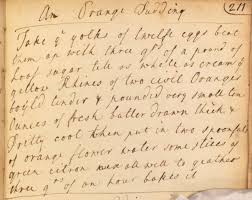 An Orange Pudding
211
Take ye yolks of twelfe eggs beat
them up with three qrs of a pound of
loaf sugar till as whitle as cream ye
yellow Rhines of two civil Oranges
boyld tender & pounded very small ten
ounces of fresh butter drawn thick &
Pritty cool when put in two spoonfuls
of orange flower water some slices of
green citron mix all well to geather
three qrs of an hour bakes it